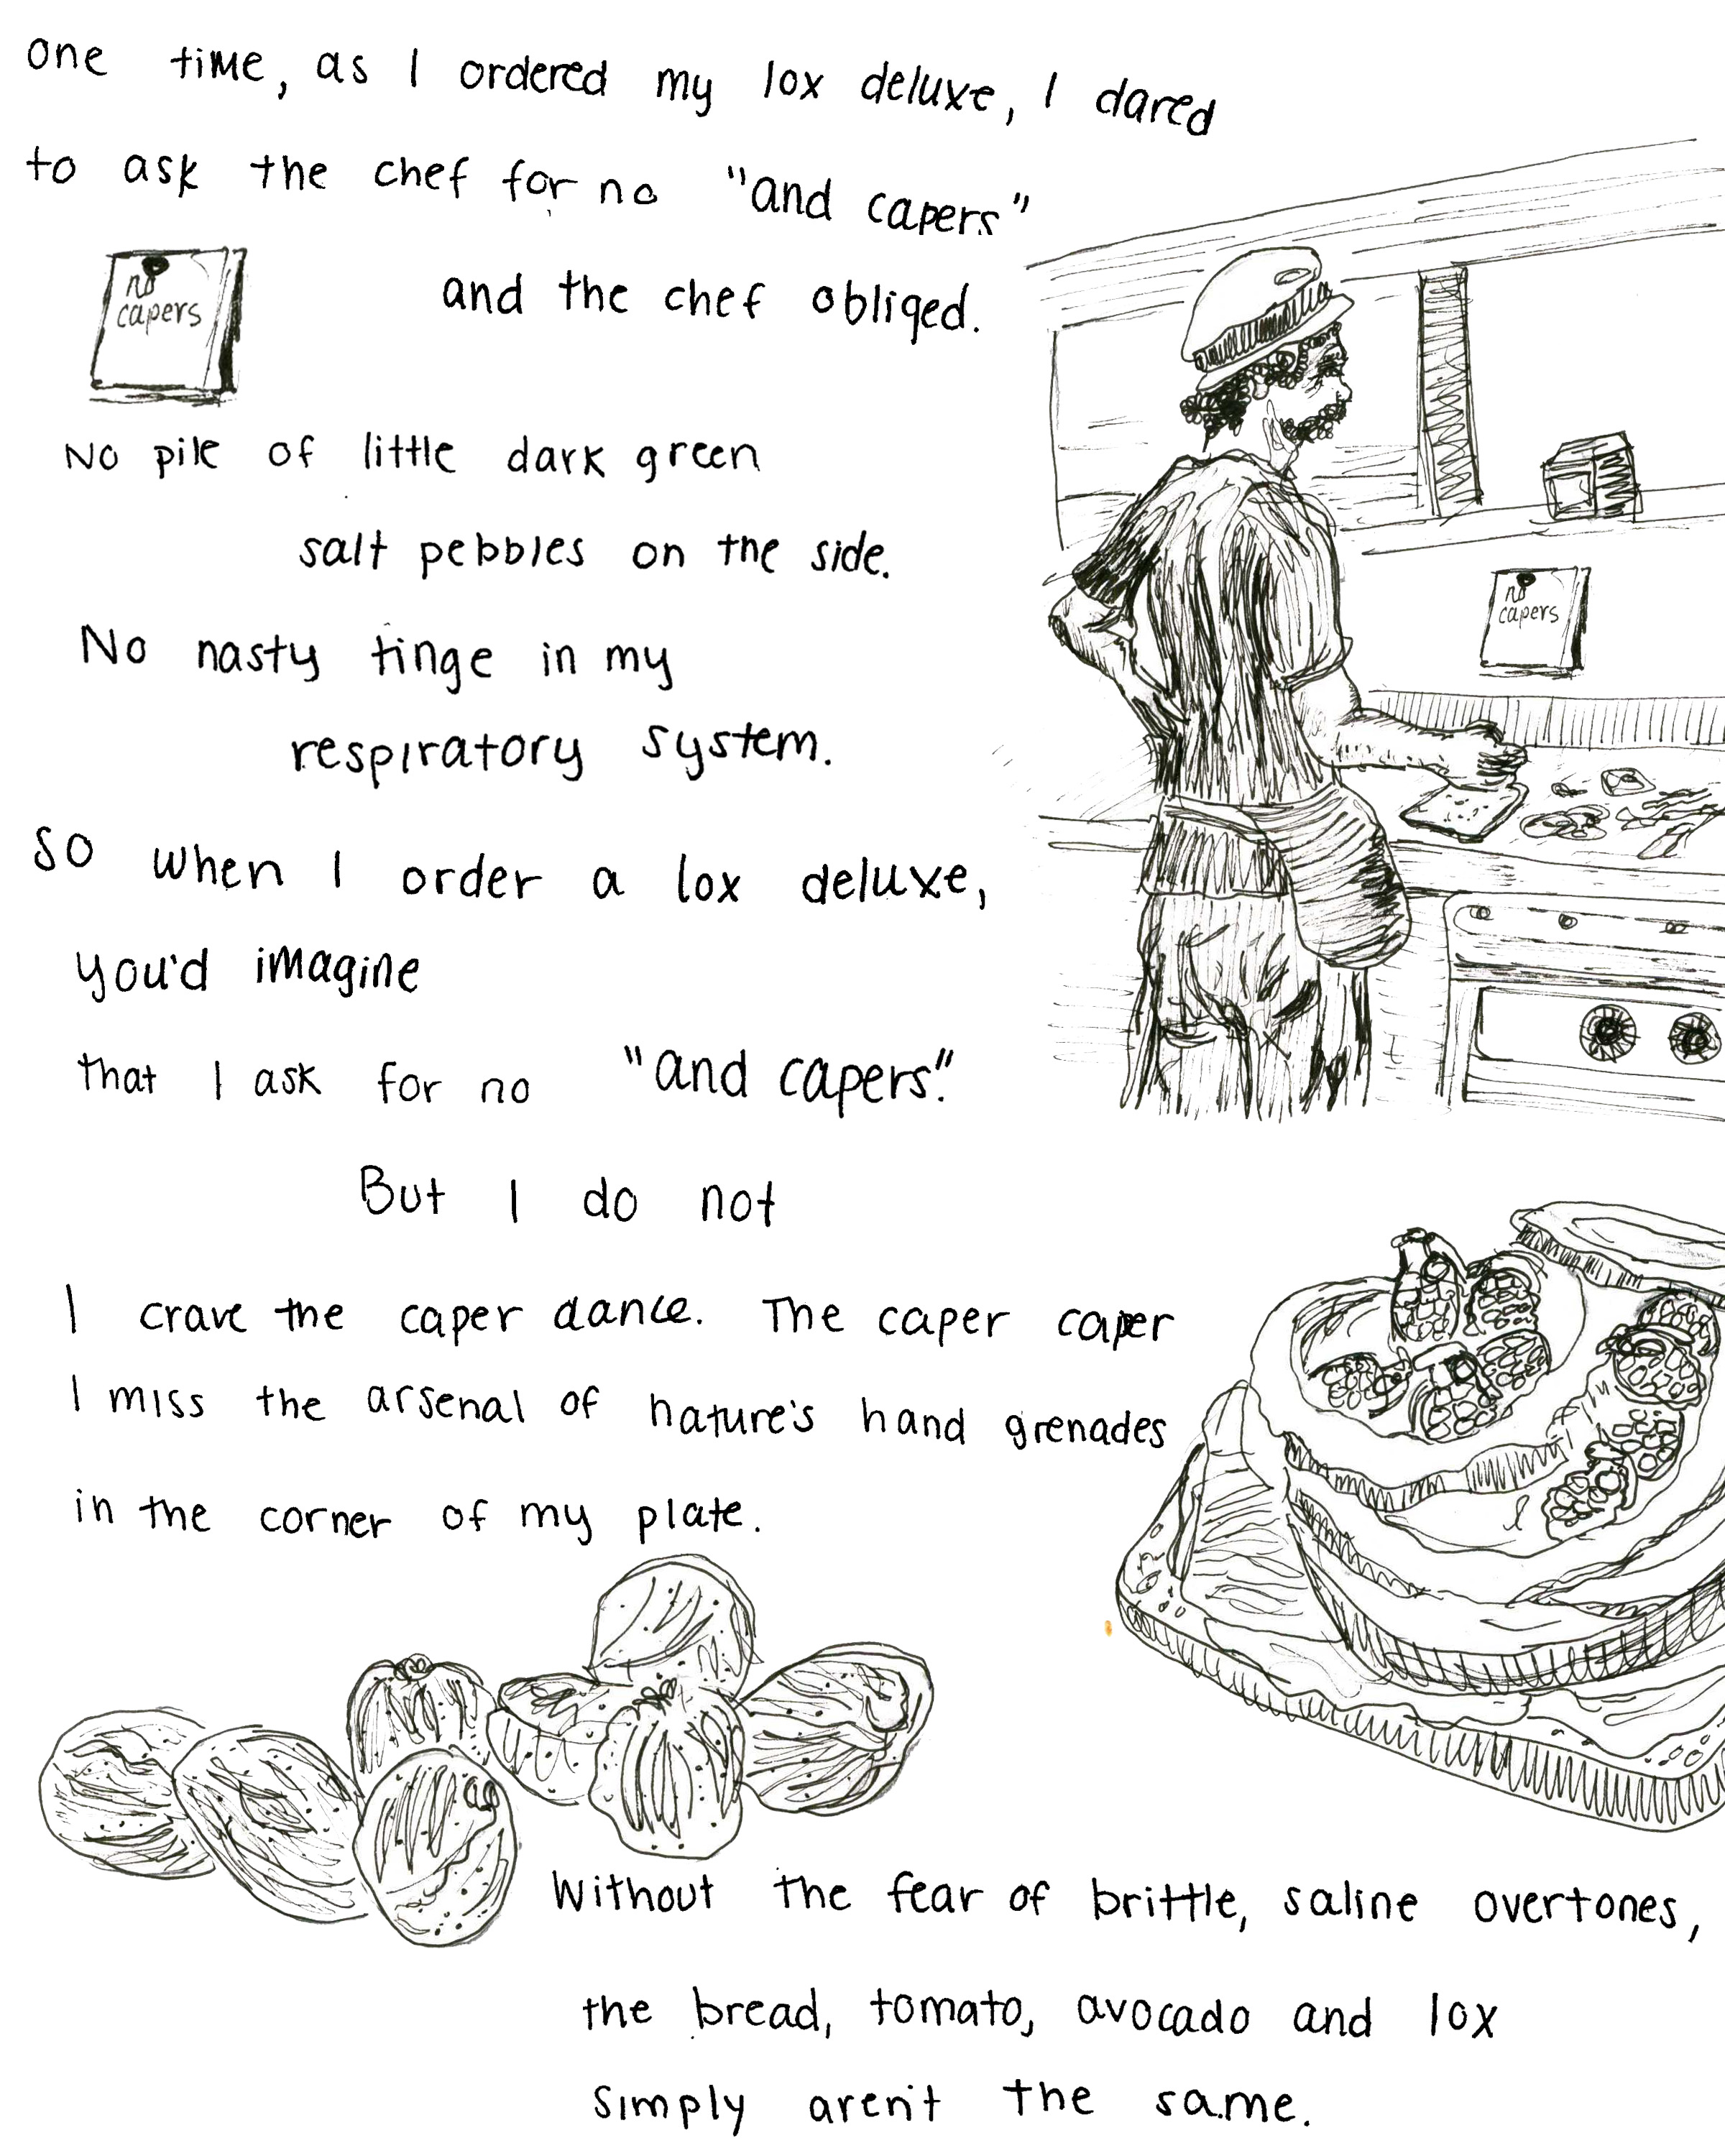 one time, as I ordered my lox deluxe, I dared
to ask the chef for no "and capers"
and the chef obliged.
no
capers
No pile of little dark green
salt pebbles on the side.
no
capers
No nasty tinge in my
respiratory system.
So when I order a lox deluxe,
you'd imagine
that I ask for no "and capers."
But I do not
I crave the caper dance. The caper caper
I miss the arsenal of nature's hand grenades
in the corner of my plate.
Without the fear of brittle, saline overtones,
the bread, tomato, avocado and lox
Simply aren't the same.